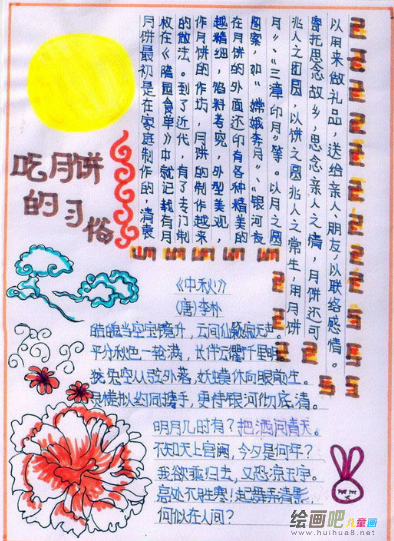 吃月饼
的习俗
月饼最初是在家庭制作的,清袁
枚在《随园食单》中就记载有月
的做法。到了近代,有了专门制
作月饼的作坊,月饼的制作越来
越精细,馅料考究,外型美观,
在月饼的外面还印有各种精美的
图案,如“嫦娥奔月”、“银河夜
月”、“三潭印月”等。以月之圆
兆人之团圆,以饼之圆兆人之常生,用月饼
寄托思念故乡,思念亲人之情,月饼还可
以用来做礼品,送给亲人、朋友以联络感情。
《中秋》
(唐)李朴
皓魄当空宝镜升,云间仙籁寂无声。
平分秋色一轮满,长伴云衢千里明。
狡兔空从弦外落,妖蟆休向眼前生。
灵槎拟约同携手,更待银河彻底清。
明月几时有?把酒问青天。
不知天上宫阙,今夕是何年?
我欲乘归去,又恐凉玉宇。
高处不胜寒!起舞弄清影
何似在人间?
绘画吧儿童画
www.huihua8.net